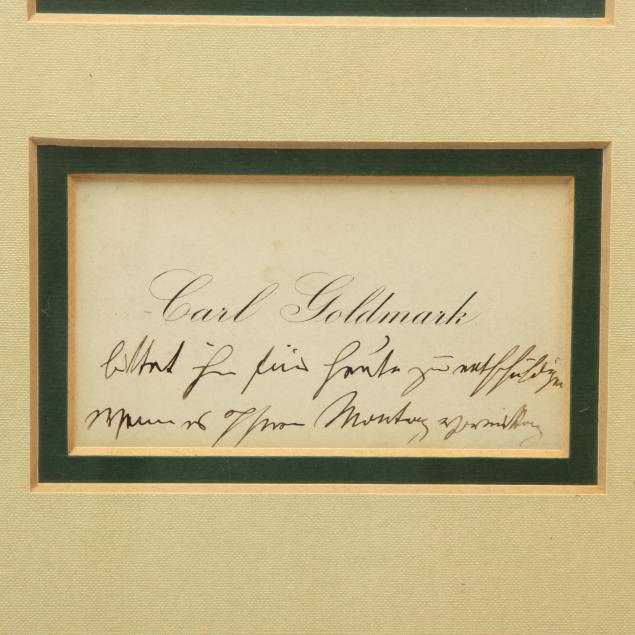 Carl Goldmark
bittet ihn für heute zu entschuldigen
wenn es Ihnen Montag vormittag